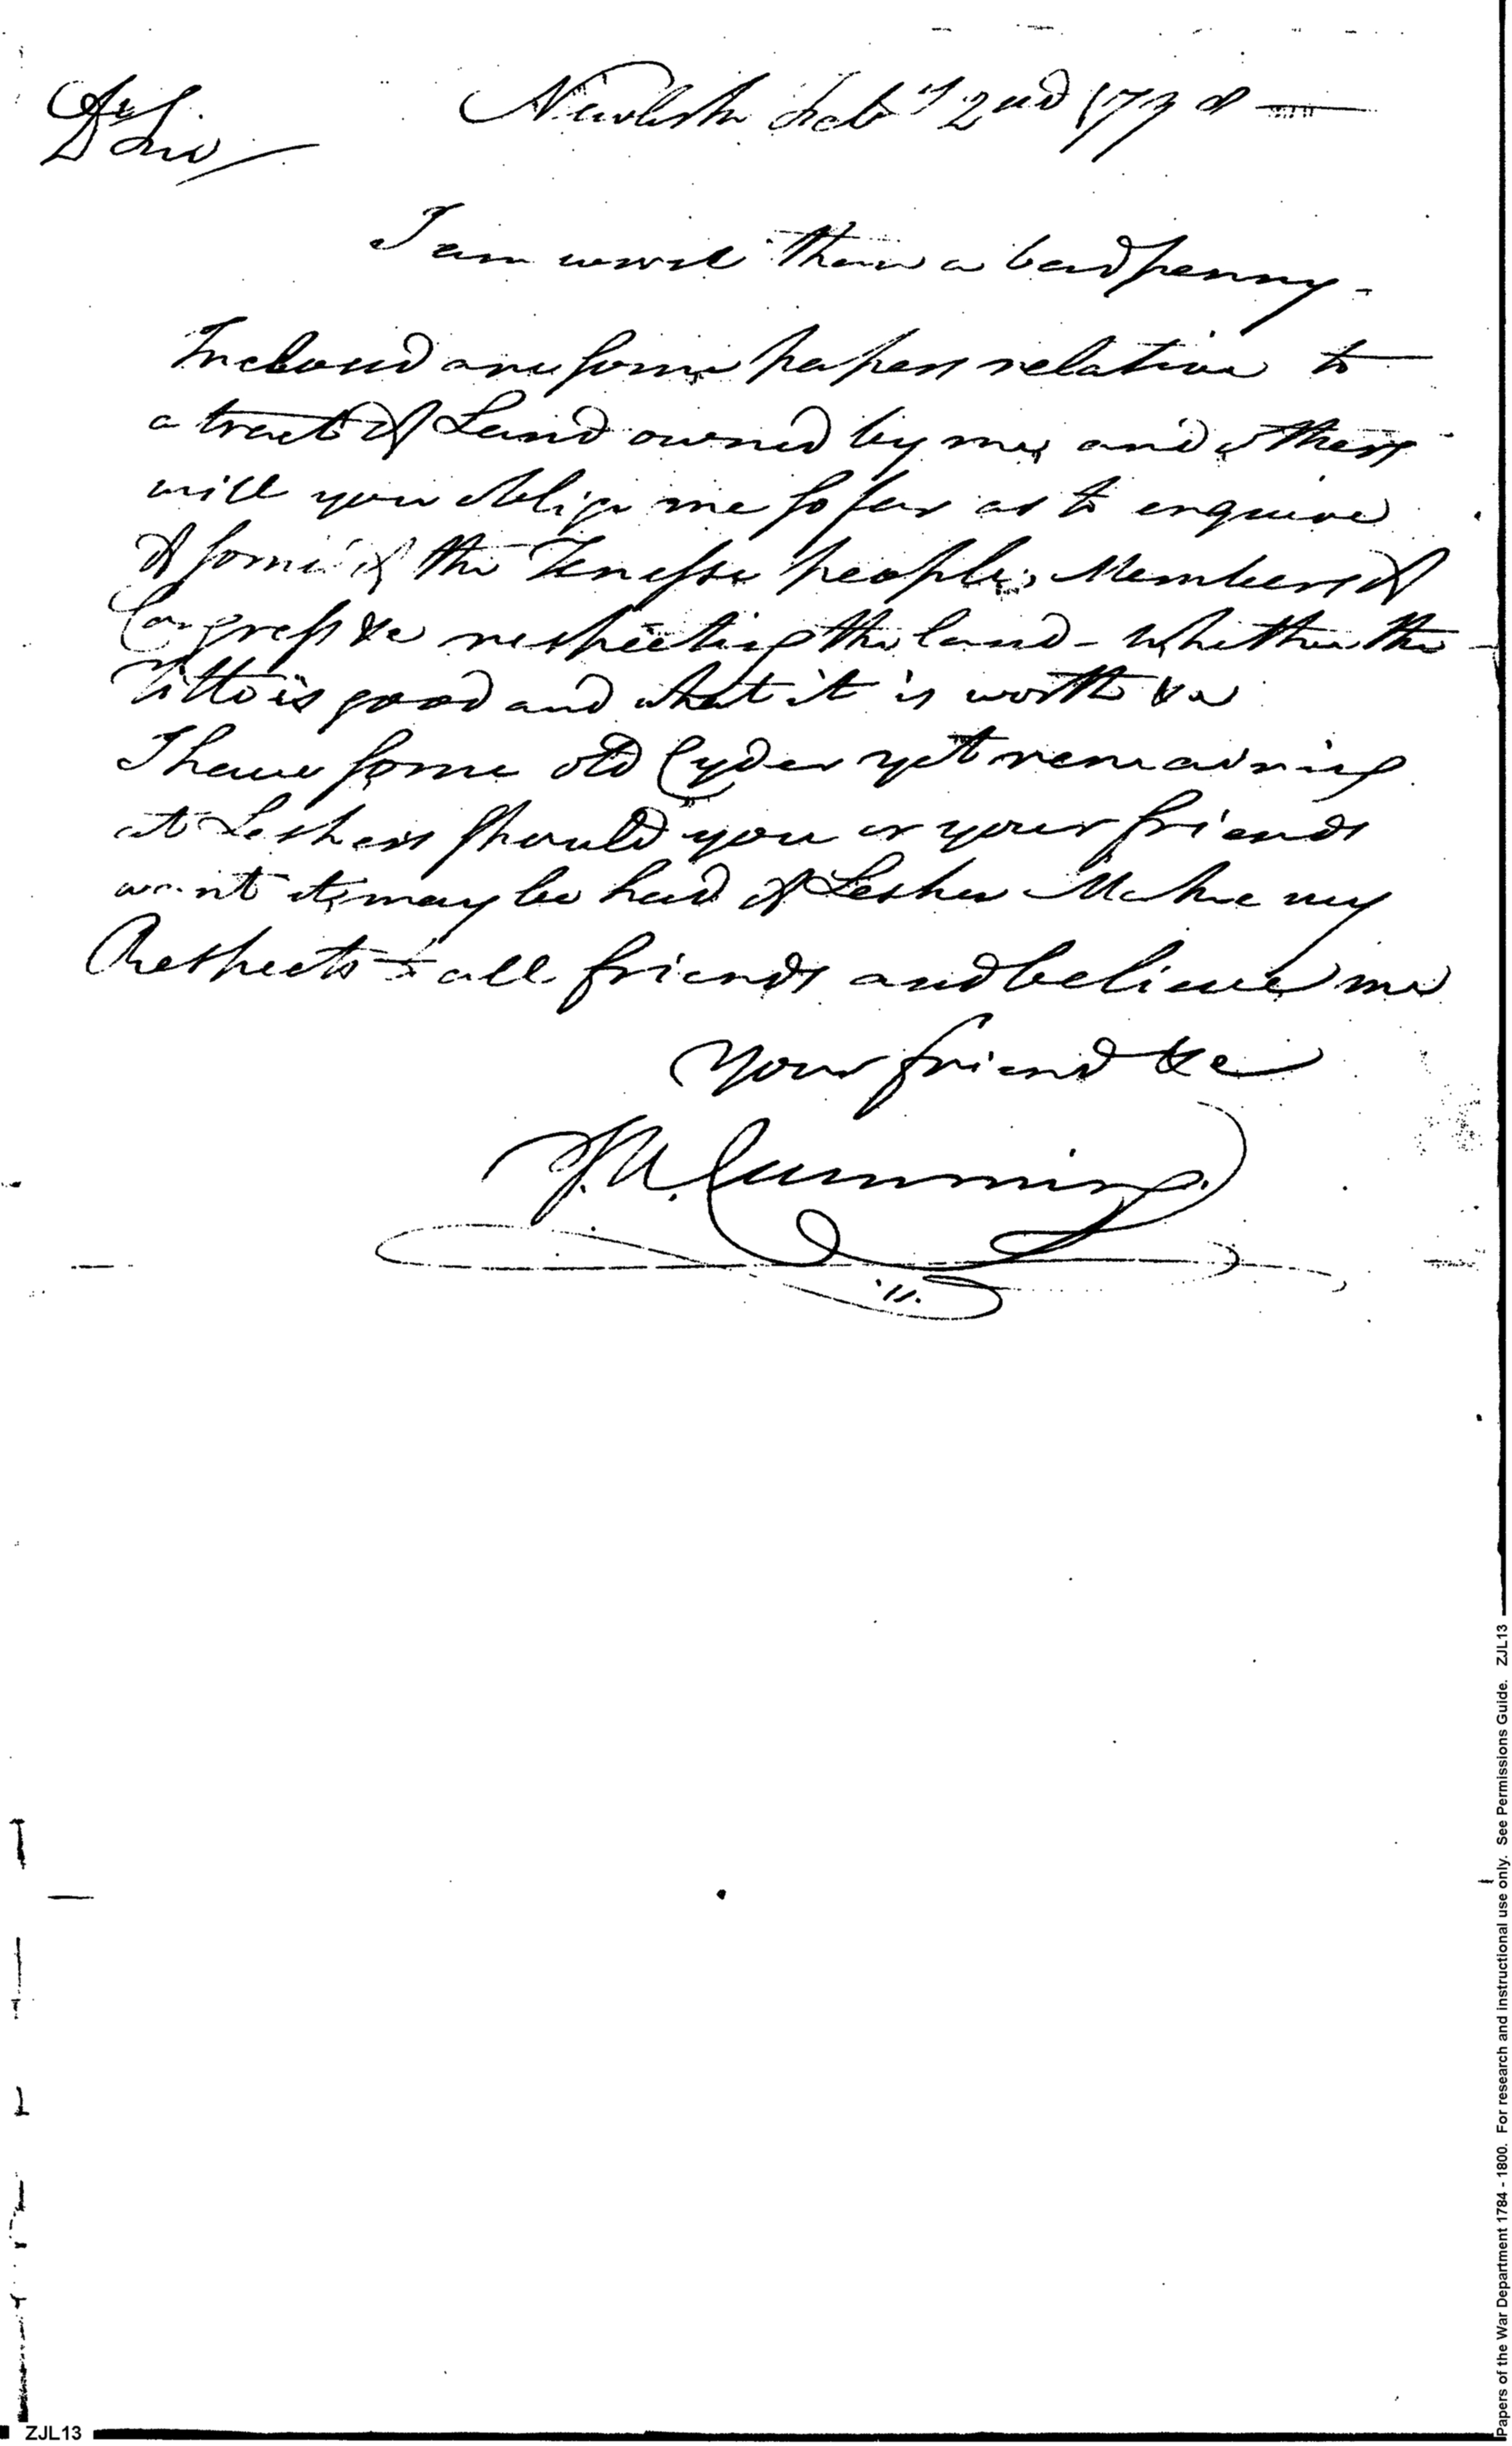 Dr Sir
Newark Feby 2nd 1798
I am worse than a bad penny -
Inclosed are some papers relative to
a tract of Land owned by me, and others
will you oblige me so far as to enquire
of some of the Tenessee people, Members of
Congress &c respecting the land - whether the
Title is good and what it is worth &c
I have some old Cyder yet remaining
at Leshers should you or your friends
want it, may be had of Lesher Make my
Respects to all friends and believe me
Your friend &c
J.N. Cumming
ZJL13
Papers of the War Department 1784 - 1800. For research and instructional use only. See Permissions Guide. ZJL13